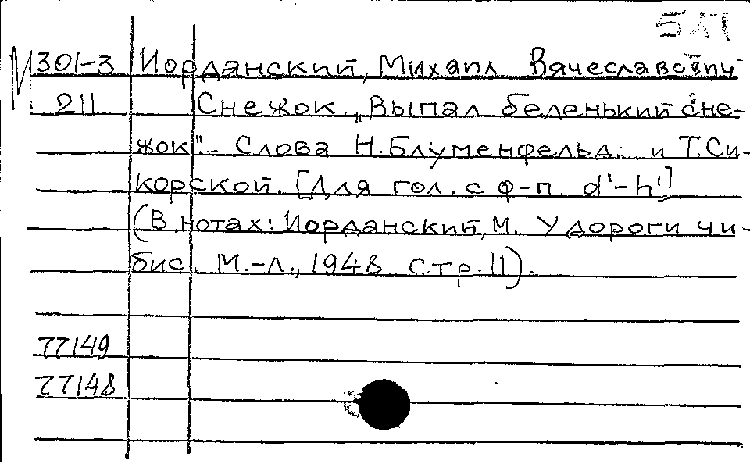 М 301-3 Иорданский, Михаил Вячеславович
211 Снежок „Выпал беленький сне-
жок". Слова Н. Блуменфельд и Т. Си-
корской. [Для гол. с ф-п. d'-h']
(В нотах: Иорданский, М. У дороги чи-
бис. М.-Л., 1948 стр. 11).
77149
77148